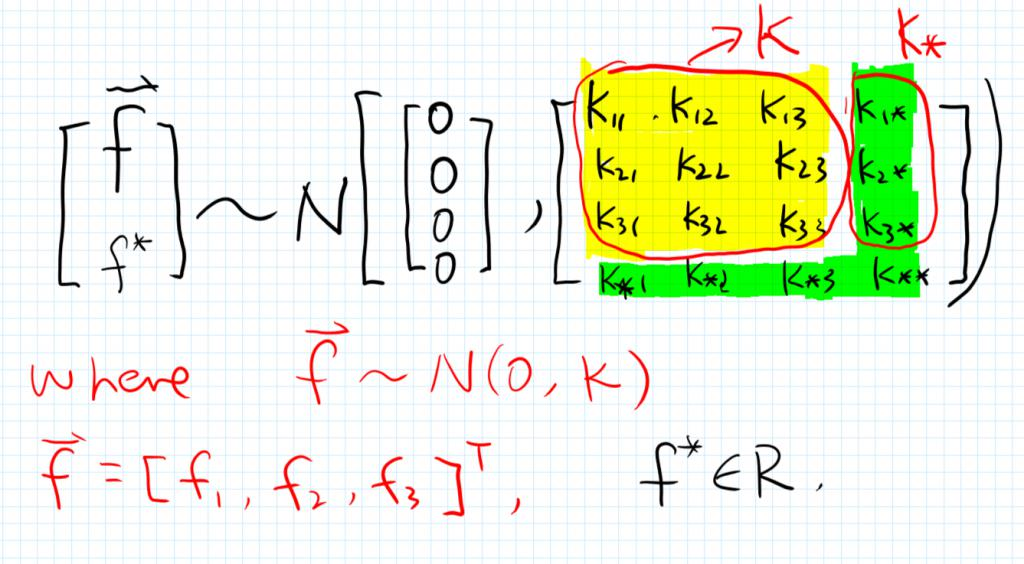 → K K*
[f⃗ f*] ~ N[[0 0 0 0], [K11 K12 K13 K1*
K21 K22 K23 K2*
K31 K32 K33 K3*
K*1 K*2 K*3 K**]])
where f⃗ ~ N(0, K)
f⃗ = [f1, f2, f3]ᵀ, f* ∈ R.